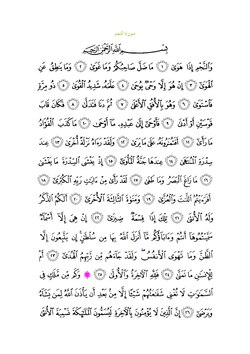 سورة النجم
بِسْمِ اللَّهِ الرَّحْمَٰنِ الرَّحِيمِ
وَالنَّجْمِ إِذَا هَوَىٰ ١ مَا ضَلَّ صَاحِبُكُمْ وَمَا غَوَىٰ ٢ وَمَا يَنطِقُ عَنِ
الْهَوَىٰ ٣ إِنْ هُوَ إِلَّا وَحْيٌ يُوحَىٰ ٤ عَلَّمَهُ شَدِيدُ الْقُوَىٰ ٥ ذُو مِرَّةٍ
فَاسْتَوَىٰ ٦ وَهُوَ بِالْأُفُقِ الْأَعْلَىٰ ٧ ثُمَّ دَنَا فَتَدَلَّىٰ ٨ فَكَانَ قَابَ
قَوْسَيْنِ أَوْ أَدْنَىٰ ٩ فَأَوْحَىٰ إِلَىٰ عَبْدِهِ مَا أَوْحَىٰ ١٠ مَا كَذَبَ الْفُؤَادُ
مَا رَأَىٰ ١١ أَفَتُمَارُونَهُ عَلَىٰ مَا يَرَىٰ ١٢ وَلَقَدْ رَآهُ نَزْلَةً أُخْرَىٰ ١٣ عِندَ
سِدْرَةِ الْمُنتَهَىٰ ١٤ عِندَهَا جَنَّةُ الْمَأْوَىٰ ١٥ إِذْ يَغْشَى السِّدْرَةَ مَا يَغْشَىٰ
١٦ مَا زَاغَ الْبَصَرُ وَمَا طَغَىٰ ١٧ لَقَدْ رَأَىٰ مِنْ آيَاتِ رَبِّهِ الْكُبْرَىٰ ١٨
أَفَرَأَيْتُمُ اللَّاتَ وَالْعُزَّىٰ ١٩ وَمَنَاةَ الثَّالِثَةَ الْأُخْرَىٰ ٢٠ أَلَكُمُ الذَّكَرُ
وَلَهُ الْأُنثَىٰ ٢١ تِلْكَ إِذًا قِسْمَةٌ ضِيزَىٰ ٢٢ إِنْ هِيَ إِلَّا أَسْمَاءٌ
سَمَّيْتُمُوهَا أَنتُمْ وَآبَاؤُكُم مَّا أَنزَلَ اللَّهُ بِهَا مِن سُلْطَانٍ إِن يَتَّبِعُونَ إِلَّا
الظَّنَّ وَمَا تَهْوَى الْأَنفُسُ وَلَقَدْ جَاءَهُم مِّن رَّبِّهِمُ الْهُدَىٰ ٢٣ أَمْ
لِلْإِنسَانِ مَا تَمَنَّىٰ ٢٤ فَلِلَّهِ الْآخِرَةُ وَالْأُولَىٰ ٢٥ وَكَم مِّن مَّلَكٍ فِي
السَّمَاوَاتِ لَا تُغْنِي شَفَاعَتُهُمْ شَيْئًا إِلَّا مِن بَعْدِ أَن يَأْذَنَ اللَّهُ لِمَن يَشَاءُ
وَيَرْضَىٰ ٢٦ إِنَّ الَّذِينَ لَا يُؤْمِنُونَ بِالْآخِرَةِ لَيُسَمُّونَ الْمَلَائِكَةَ تَسْمِيَةَ الْأُنثَىٰ